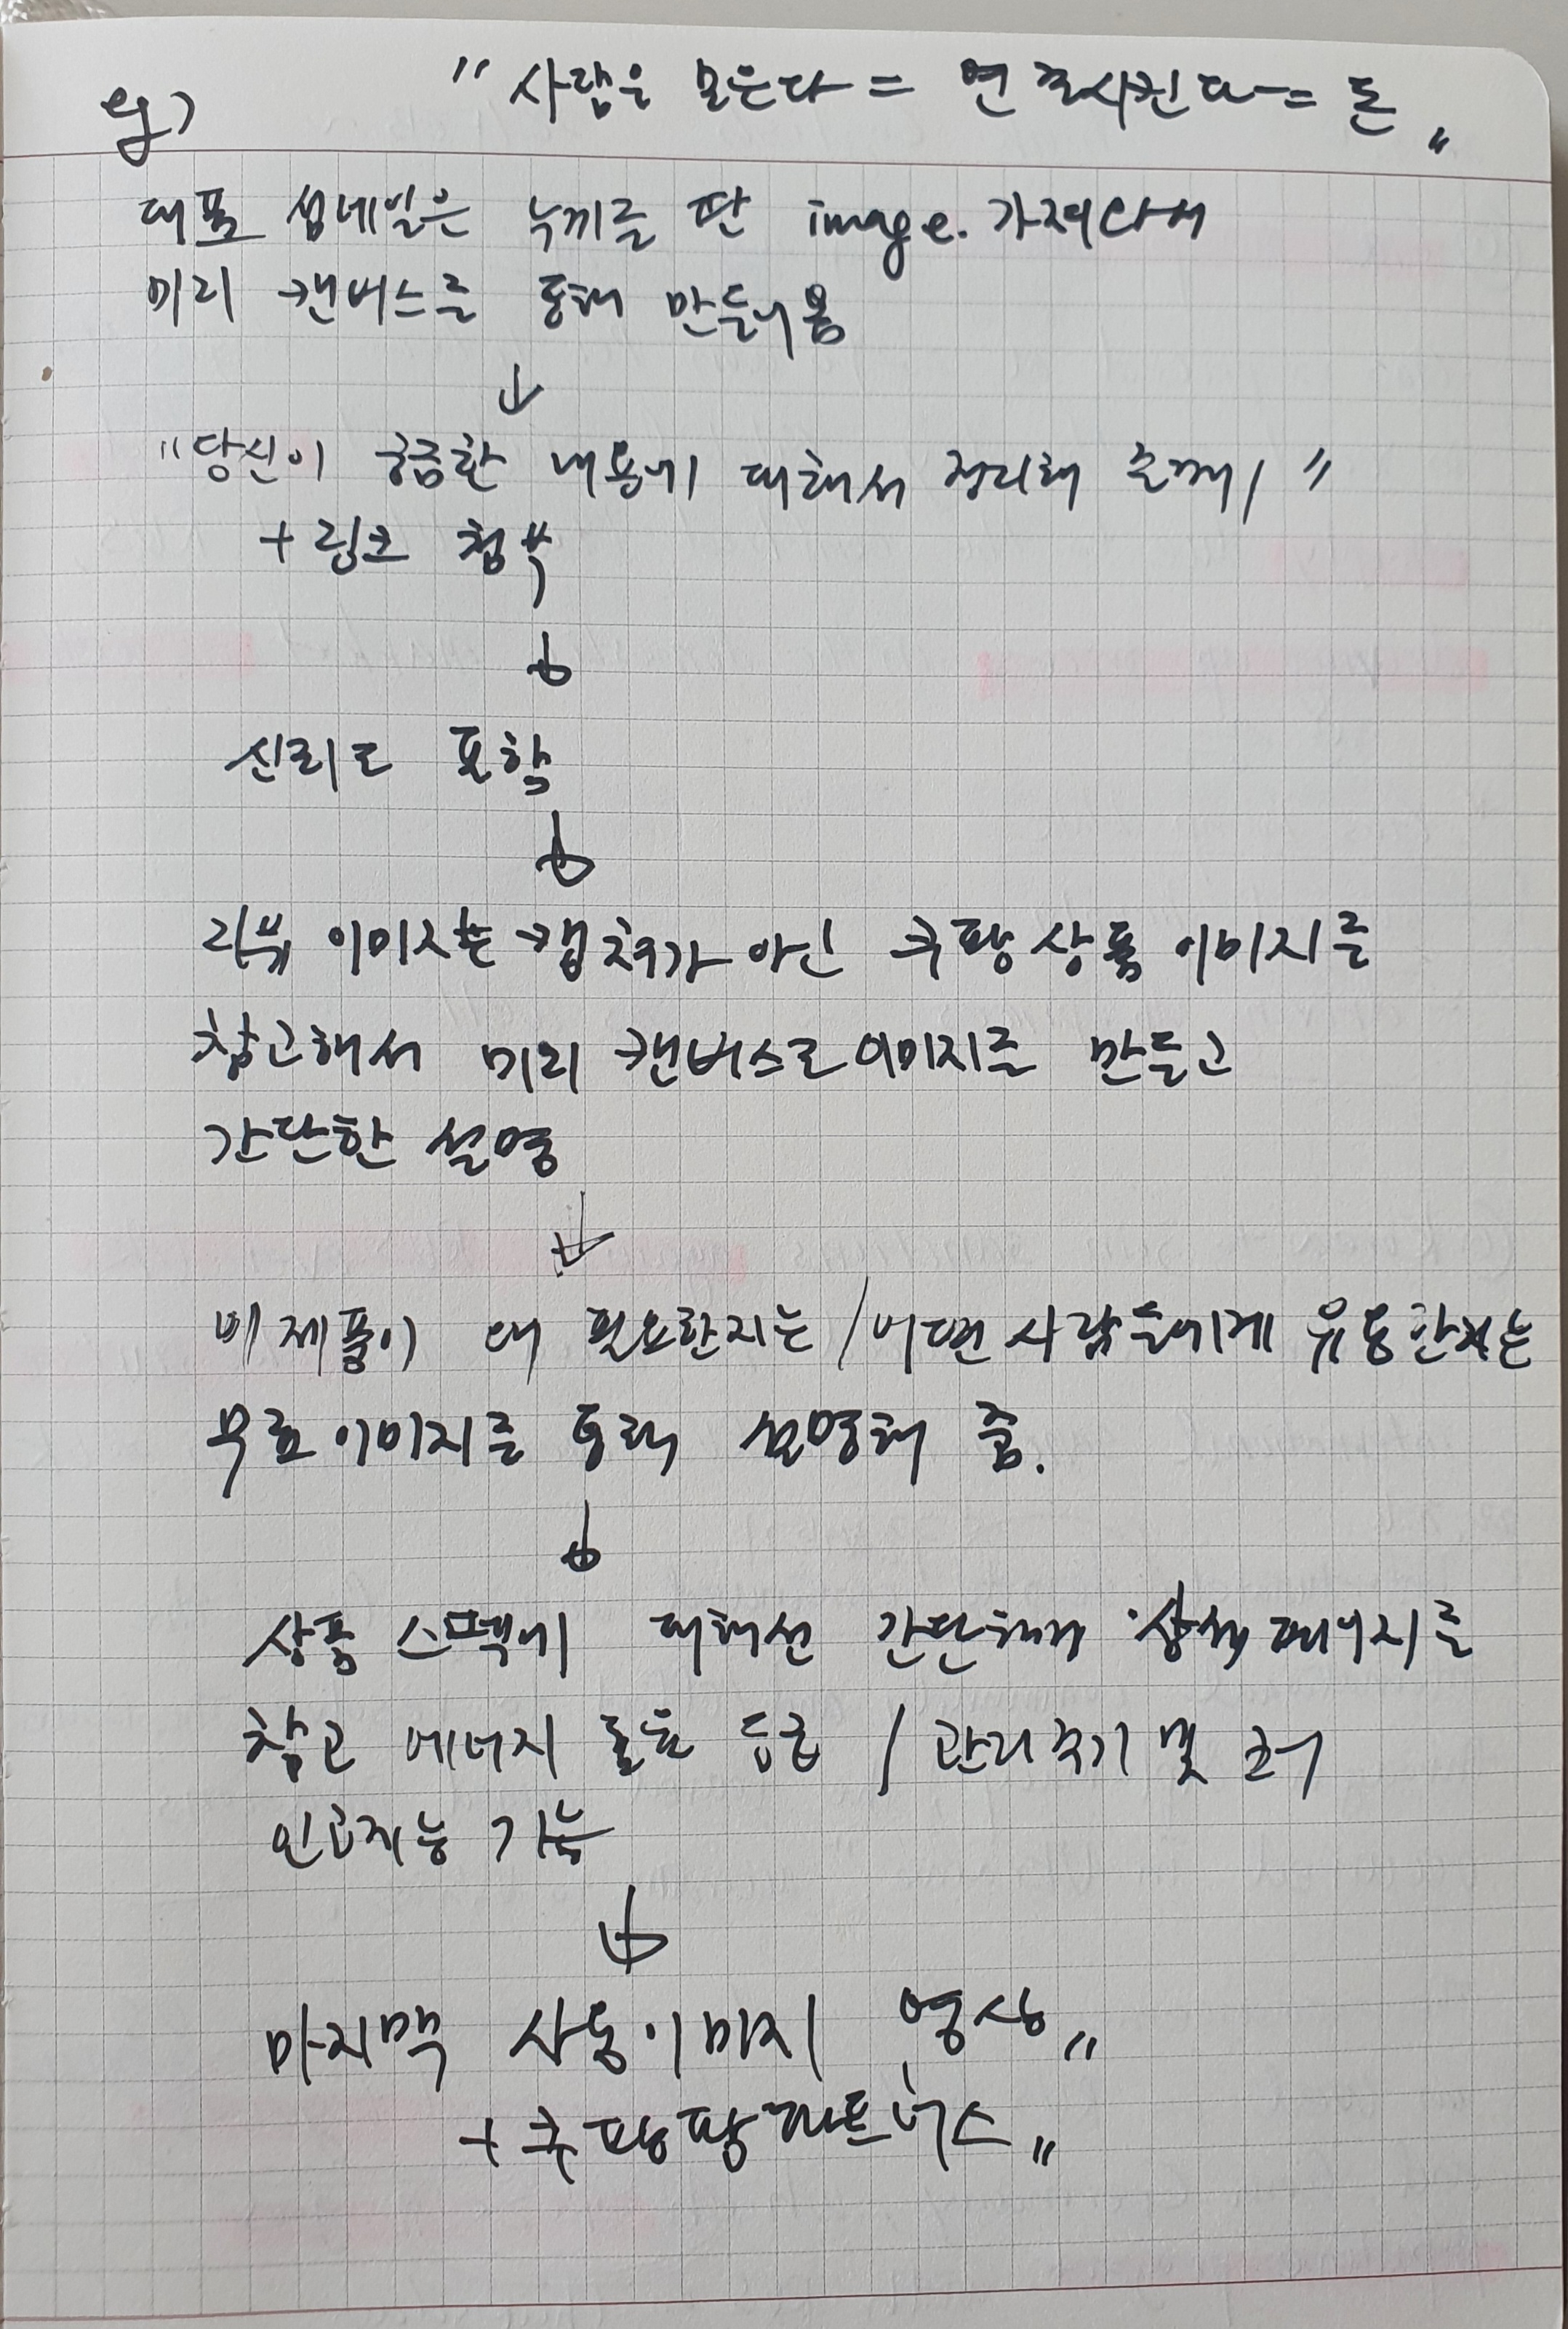 "사람을 모은다 = 연결시킨다 = 돈"
eg)
대표 섬네일은 누끼를 딴 image. 가져다가
미리 캔버스를 통해 만들어옴
↓
"당신이 궁금한 내용에 대해서 정리해 줄께/"
+ 링크 첨부
↓
신뢰도 포함
↓
리뷰 이미지는 캡쳐가 아닌 쿠팡 상품 이미지를
참고해서 미리 캔버스로 이미지를 만들고
간단한 설명
↓
제품이 왜 필요한지는 / 어떤 사람들에게 유용한지는
무료 이미지를 통해 설명해 줌.
↓
상품 스펙에 대해선 간단하게 상세 페이지를
참고 에너지 효율 등급 / 관리 주기 및
인공지능 기능
↓
마지막 사용이미지 영상"
+ 쿠팡 파트너스"